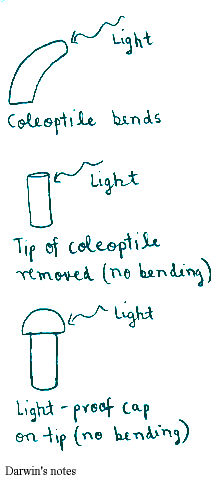 Light
Coleoptile bends
Light
Tip of coleoptile
removed (no bending)
Light
Light-proof cap
on tip (no bending)
Darwin's notes